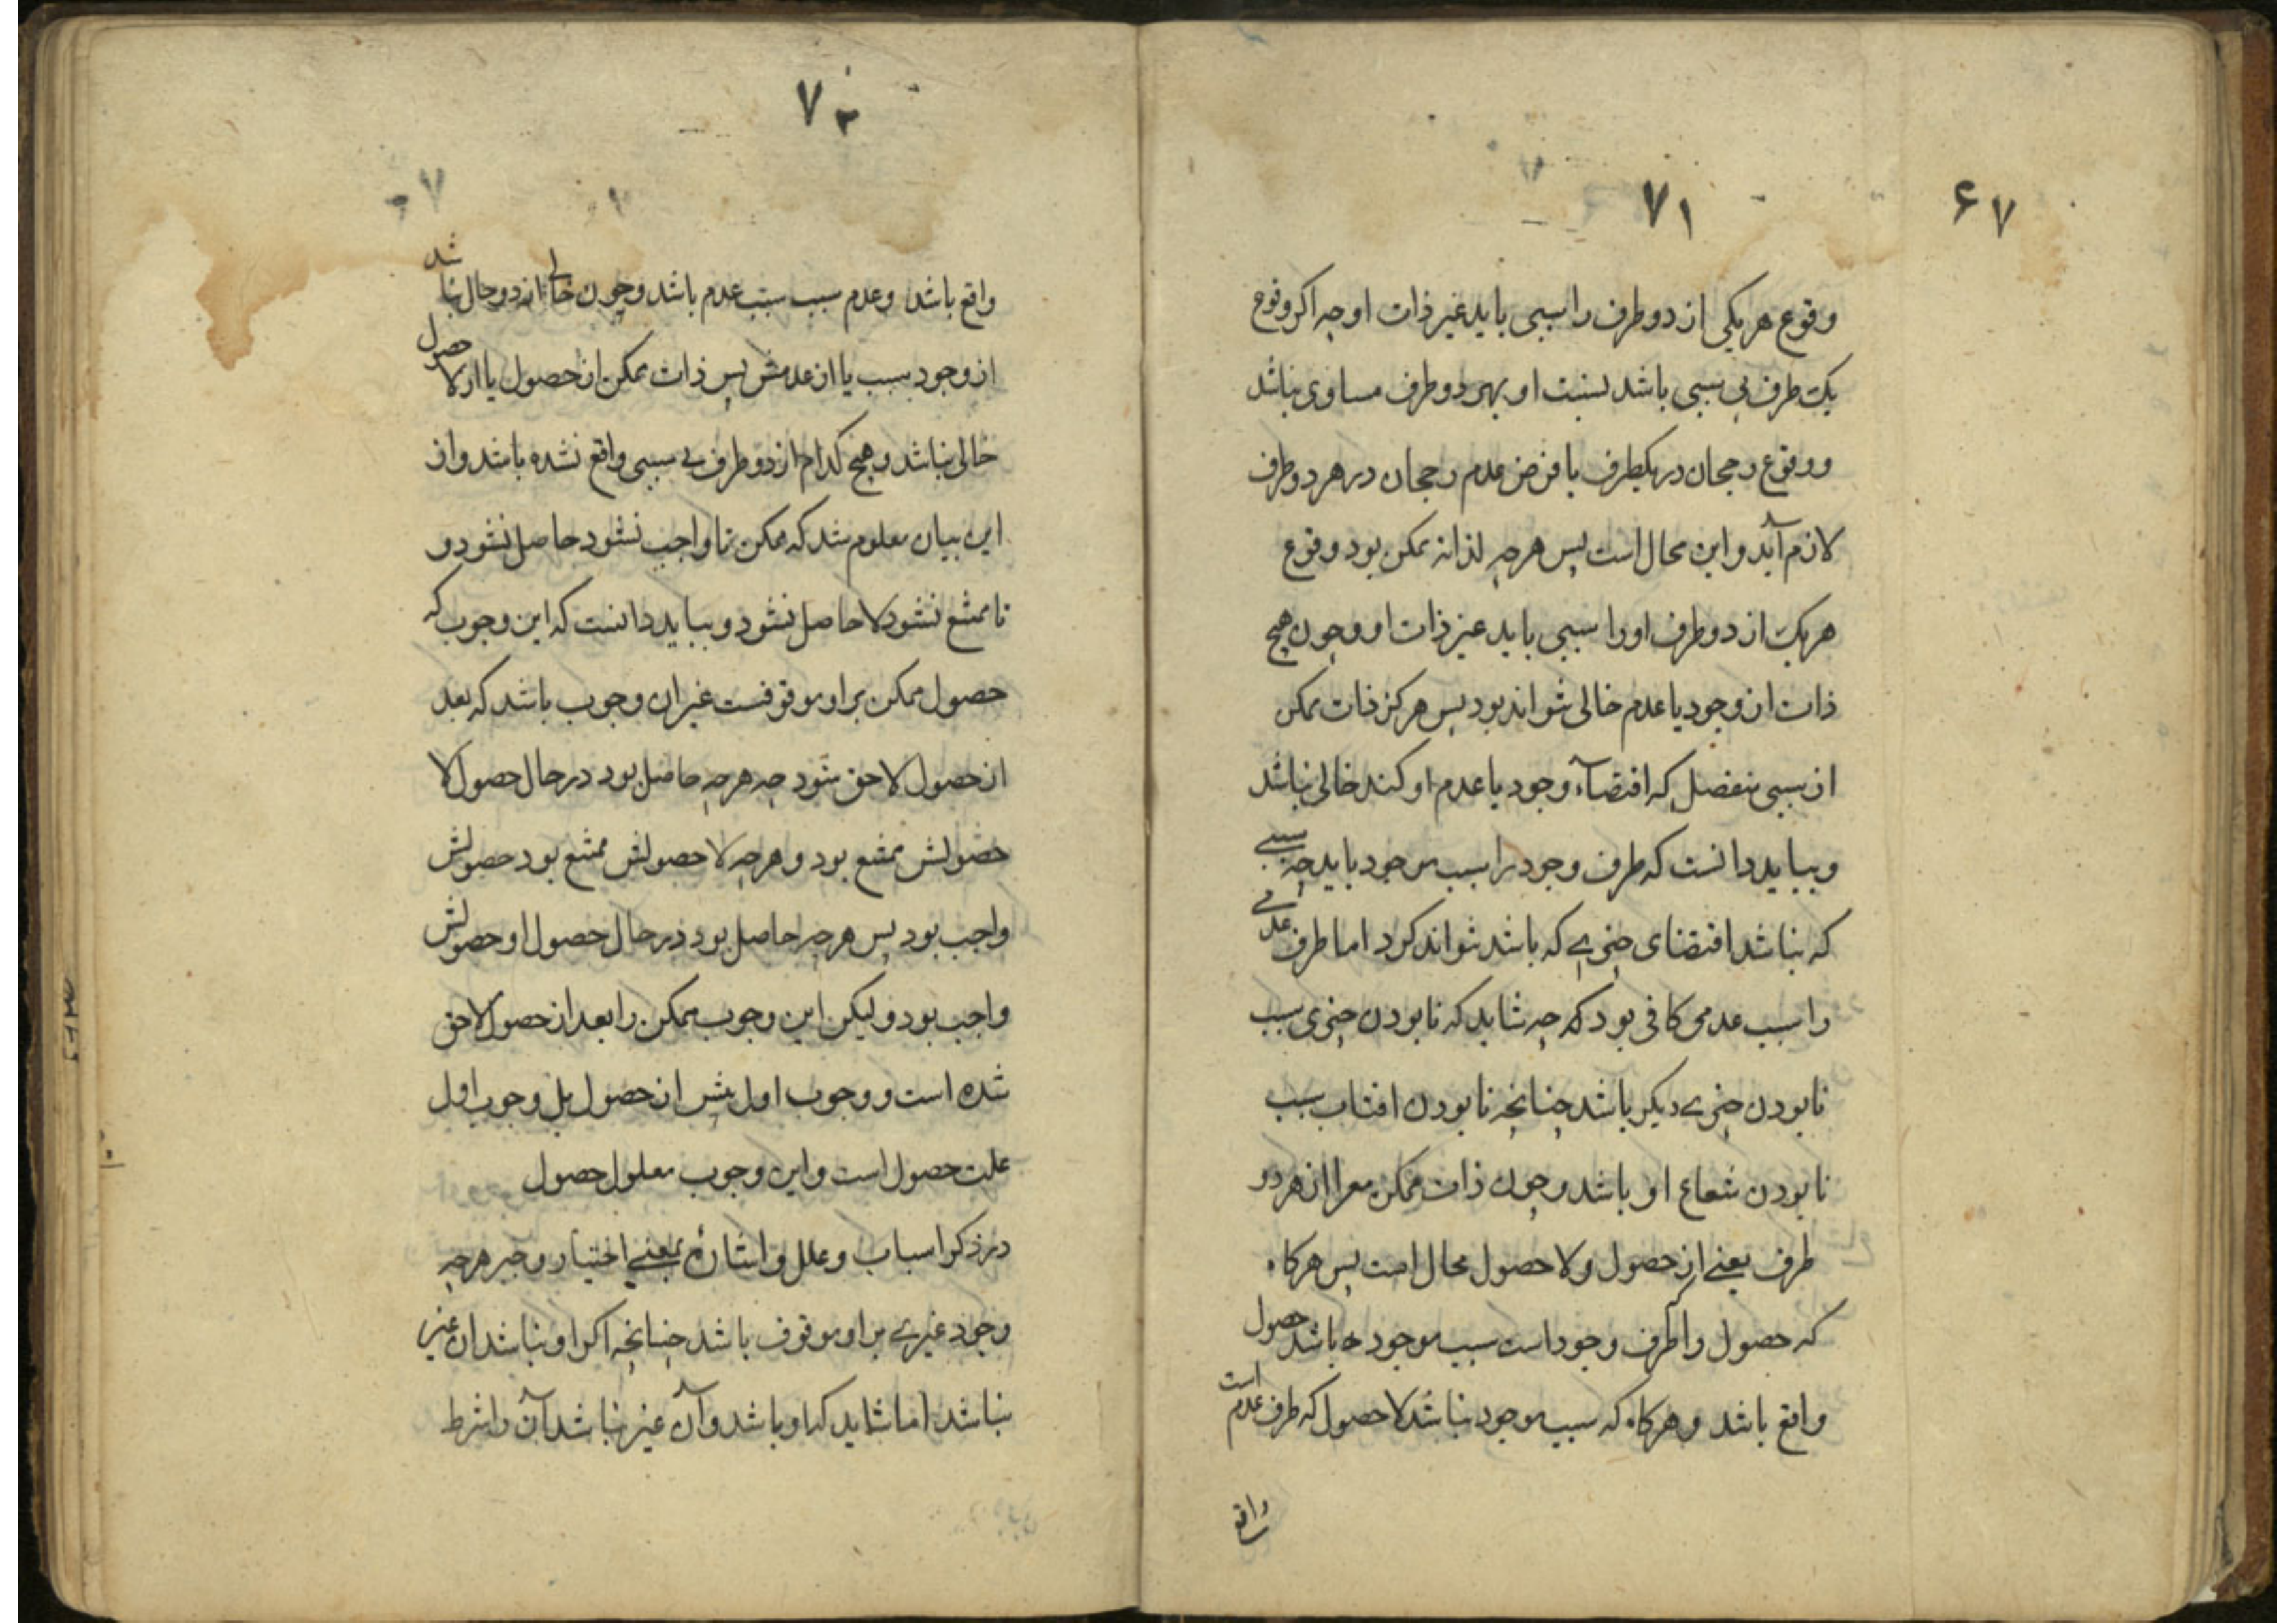 ۷۱
۶۷
وقوع هر یکی از دو طرف را سببی باید غیر ذات او چه اکر وقوع
یک طرف بی سببی باشد نسبت او بهر دو طرف مساوی نباشد
و وقوع رجحان در یکطرف با فرض عدم رجحان در هر دو طرف
لازم آید و این محال است پس هرچه لذاته ممکن بود وقوع
هر یک از دو طرف او را سببی باید غیر ذات او و چون هیچ
ذات از وجود یا عدم خالی نتواند بود پس هرکز ذات ممکن
از سببی منفصل که اقتضاء وجود یا عدم او کند خالی نباشد
و بباید دانست که طرف وجود را سبب موجود باید چه سببی
که نباشد اقتضای چیزی که باشد نتواند کرد اما طرف عدمی
را سبب عدمی کافی بود که چه شاید که نابودن چیزی سبب
نابودن چیزی دیکر باشد چنانچه نابودن افتاب سبب
نابودن شعاع او باشد و چون ذات ممکن معرا از هر دو
طرف یعنی از حصول و لا حصول محال است پس هرکاه
که حصول را که طرف وجود است سبب موجود باشد حصول
واقع باشد و هرکاه که سبب موجود نباشد لا حصول که طرف عدم است
واقع
۷۲
واقع باشد و عدم سبب سبب عدم باشد و چون خالی از دو حال نباشد
از وجود سبب یا از عدمش پس ذات ممکن از حصول یا از لا حصول
خالی نباشد و هیچ کدام از دو طرف بی سببی واقع نشده باشد و از
این بیان معلوم شد که ممکن تا واجب نشود حاصل نشود و
تا ممتنع نشود لا حاصل نشود و بباید دانست که این وجوب که
حصول ممکن بر او موقوفست غیر ان وجوب باشد که بعد
از حصول لاحق شود چه هرچه حاصل بود در حال حصول لا
حصولش ممتنع بود و هرچه لا حصولش ممتنع بود حصولش
واجب بود پس هرچه حاصل بود در حال حصول او حصولش
واجب بود و لیکن این وجوب ممکن را بعد از حصول لاحق
شده است و وجوب اول پیش از حصول بل وجوب اول
علت حصول است و این وجوب معلول حصول
در ذکر اسباب و علل و اشارة بمعنی اختیار و جبر هرچه
وجود غیری بر او موقوف باشد چنانچه اکر او نباشد ان غیر
نباشد اما شاید که او باشد و آن غیر نباشد آن را شرط